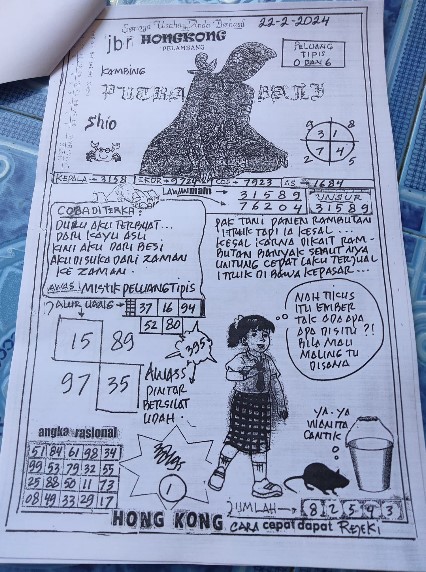 Semoga Usaha Anda Berhasil
22-2-2024
jbr HONGKONG
PELAMBANG
PELUANG
TIPIS
0 DAN 6
KAMBING
PUTRA BALI
Shio
9 8
3 1
7 4
2 5
KEPALA → 3158
EKOR → 9724
7923
AS → 1684
LAWAN
31589
76204
UNSUR
31589
COBA DITERKA:
DULU AKU TERBUAT...
DARI KAYU ASLI
KINI AKU DARI BESI
AKU DISUKA DARI ZAMAN
KE ZAMAN.
AWAS! MISTIK PELUANG TIPIS
PAK TANI PANEN RAMBUTAN
ITRUIK TAPI IA KESAL...
KESAL KARNA DIKAIT RAM-
BUTAN BANYAK SEMUT NYA
UNTUNG CEPAT LAKU TERJUAL
ITRUIK DI BAWA KEPASAR...
JALUR UANG →
37 16 94
52 80
15 89
97 35
395
AWASS
PINTAR
BERSILAT
LIDAH...
NAH TICUS
ITU EMBER
TAK ADA APA
APA DISITU ?!
BILA MAU
MALING TU
DISANA
YA-YA
WANITA
CANTIK
angka rasional
51 84 61 98 34
99 53 79 32 55
25 88 50 11 73
08 49 33 29 17
1
JUMLAH → 8 2 5 4 3
HONG KONG CARA cepat dapat REJEKI